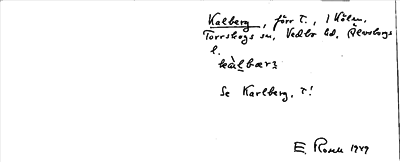 Kalberg, förr t., i Köla
Torrskogs sn, Vedbo hd, Älvsborgs
l.
Se Karlberg, t!
E. Rosell 1949